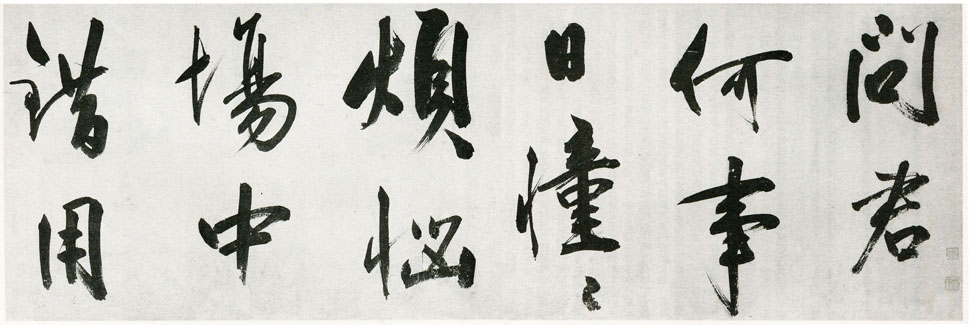 問君
何事
日憧〻
煩惱
場中
錯用